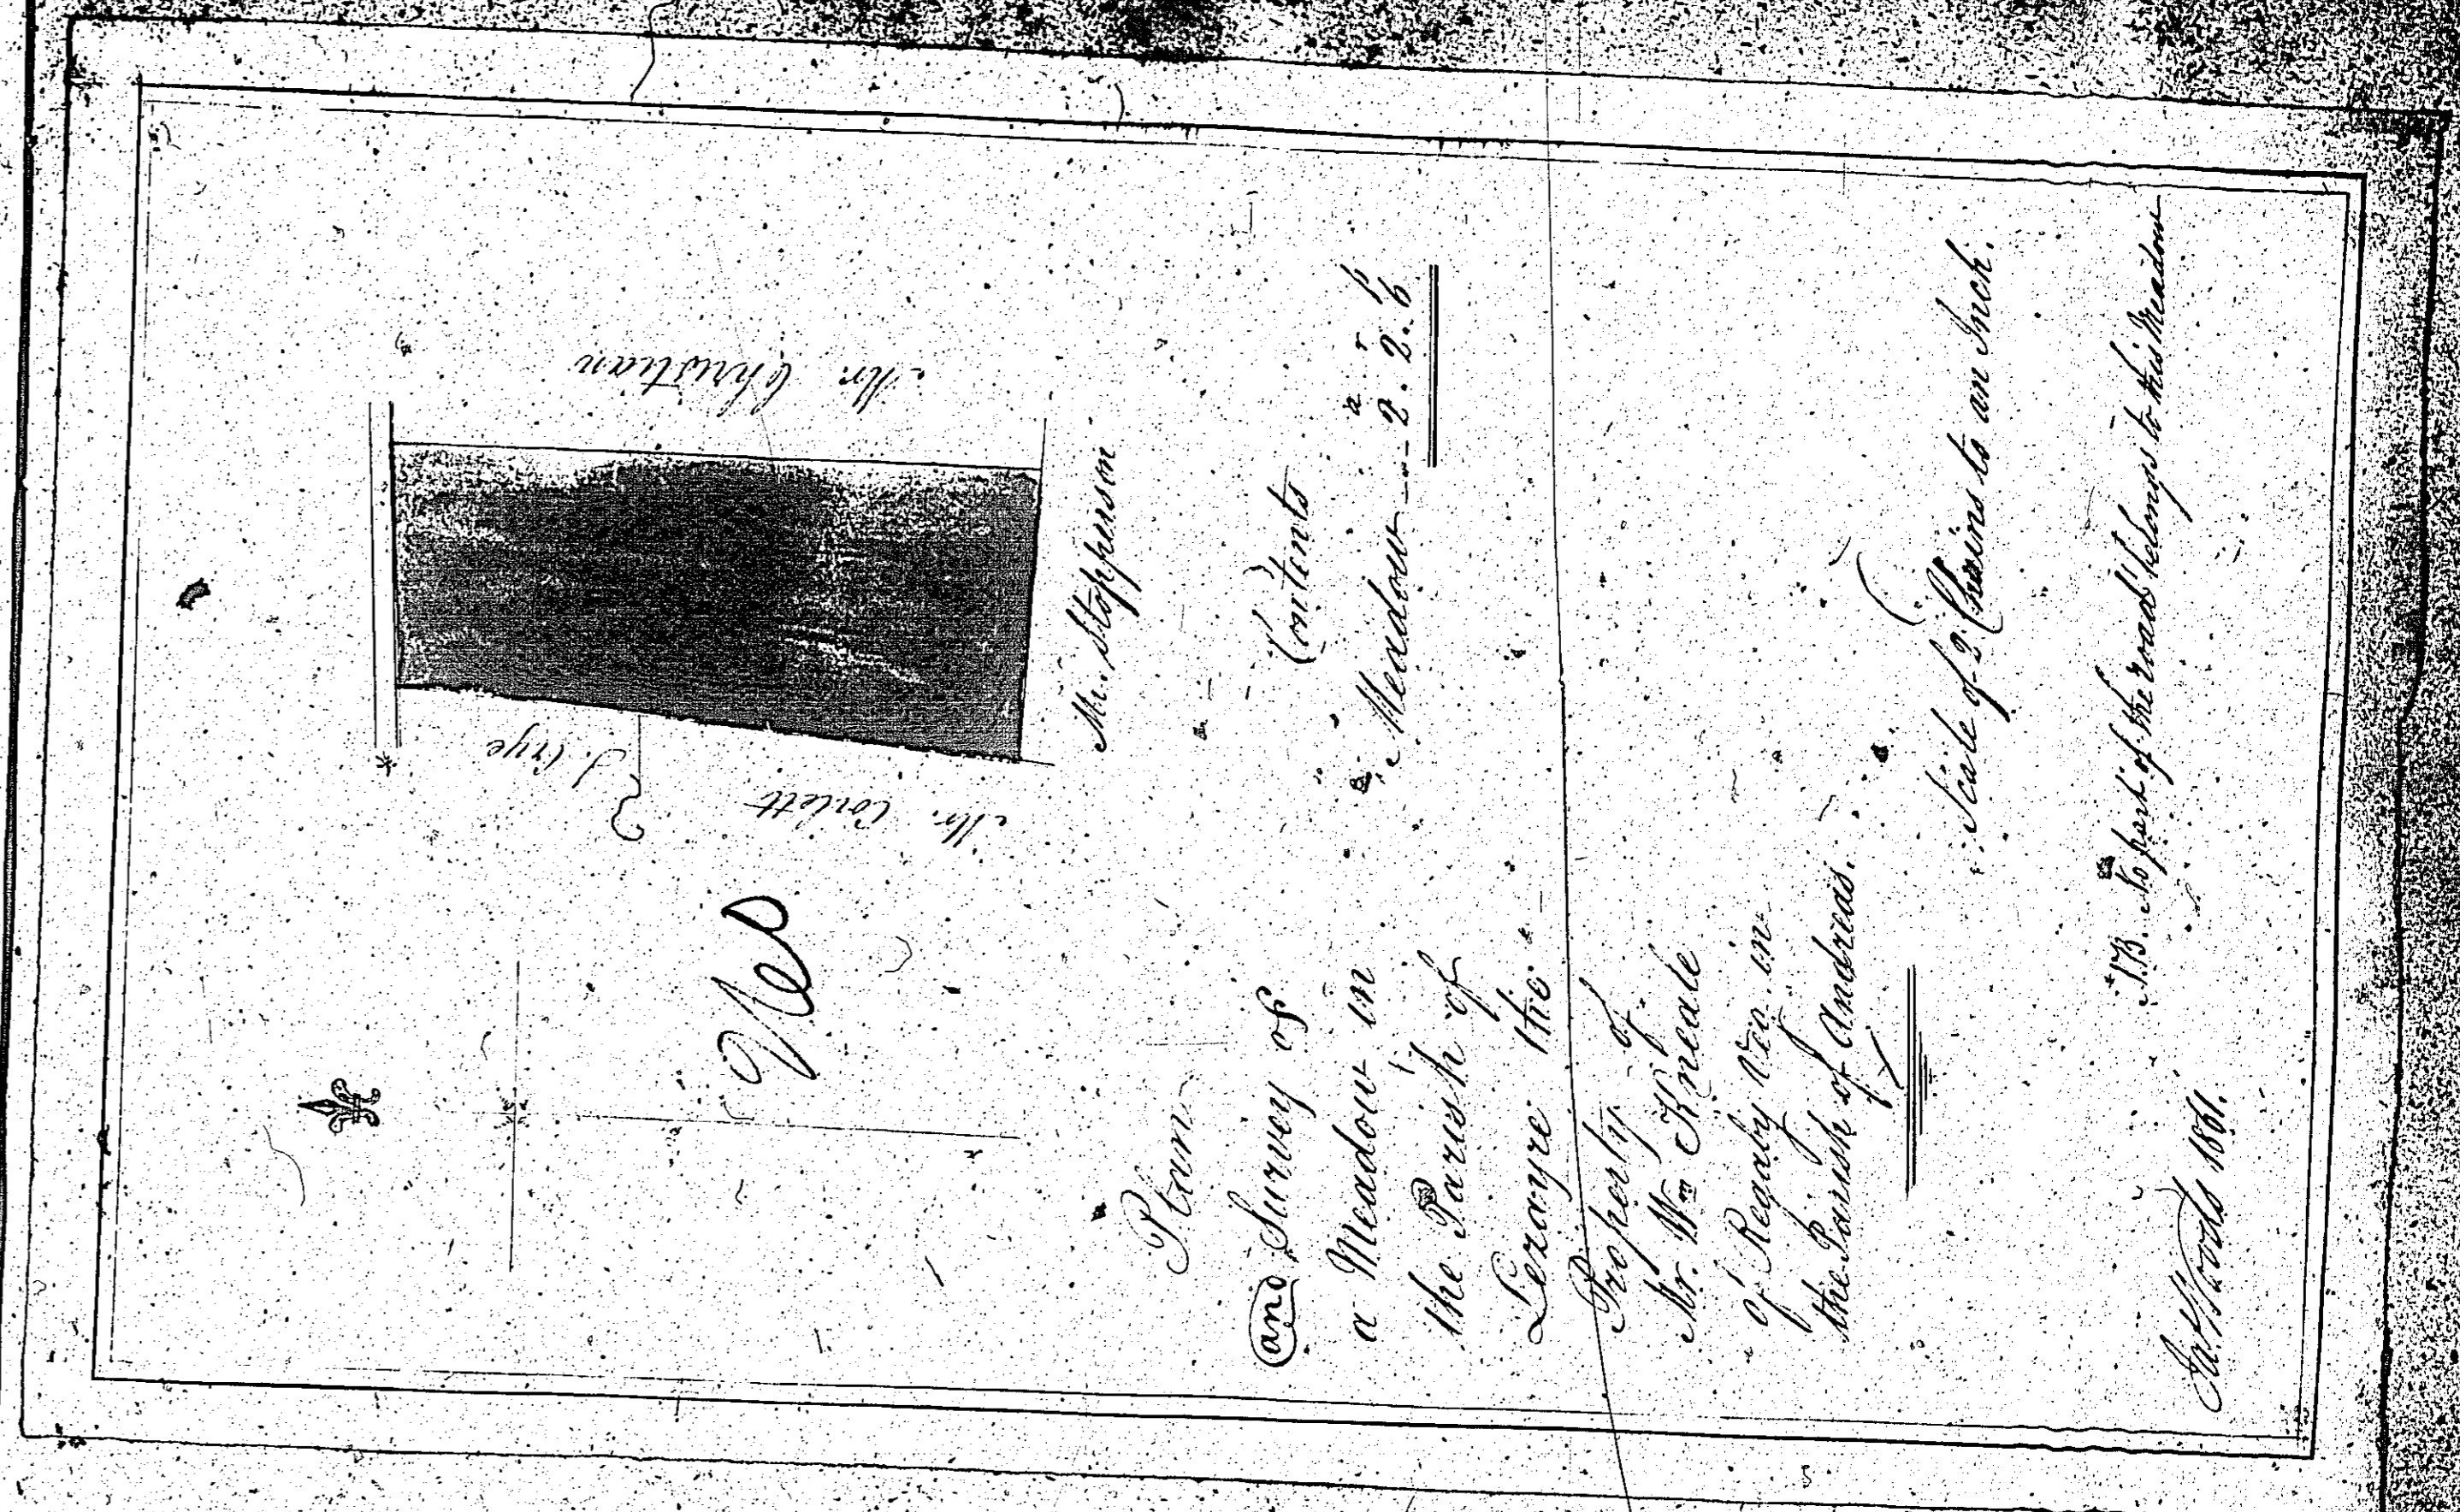 Mr. Christian
J. Crye
Mr. Corlett
Mr. Stopperson
Plan
and Survey of
a Meadow in
the Parish of
Lezayre the
Property of
Mr. Wm Kneale
of Regaby Vio. in
the Parish of Andreas.
Contents
a r p
Meadow --- 2. 2. 6
Scale of 2 Chains to an Inch.
N.B. No part of the road belongs to this Meadow
Woods 1861.